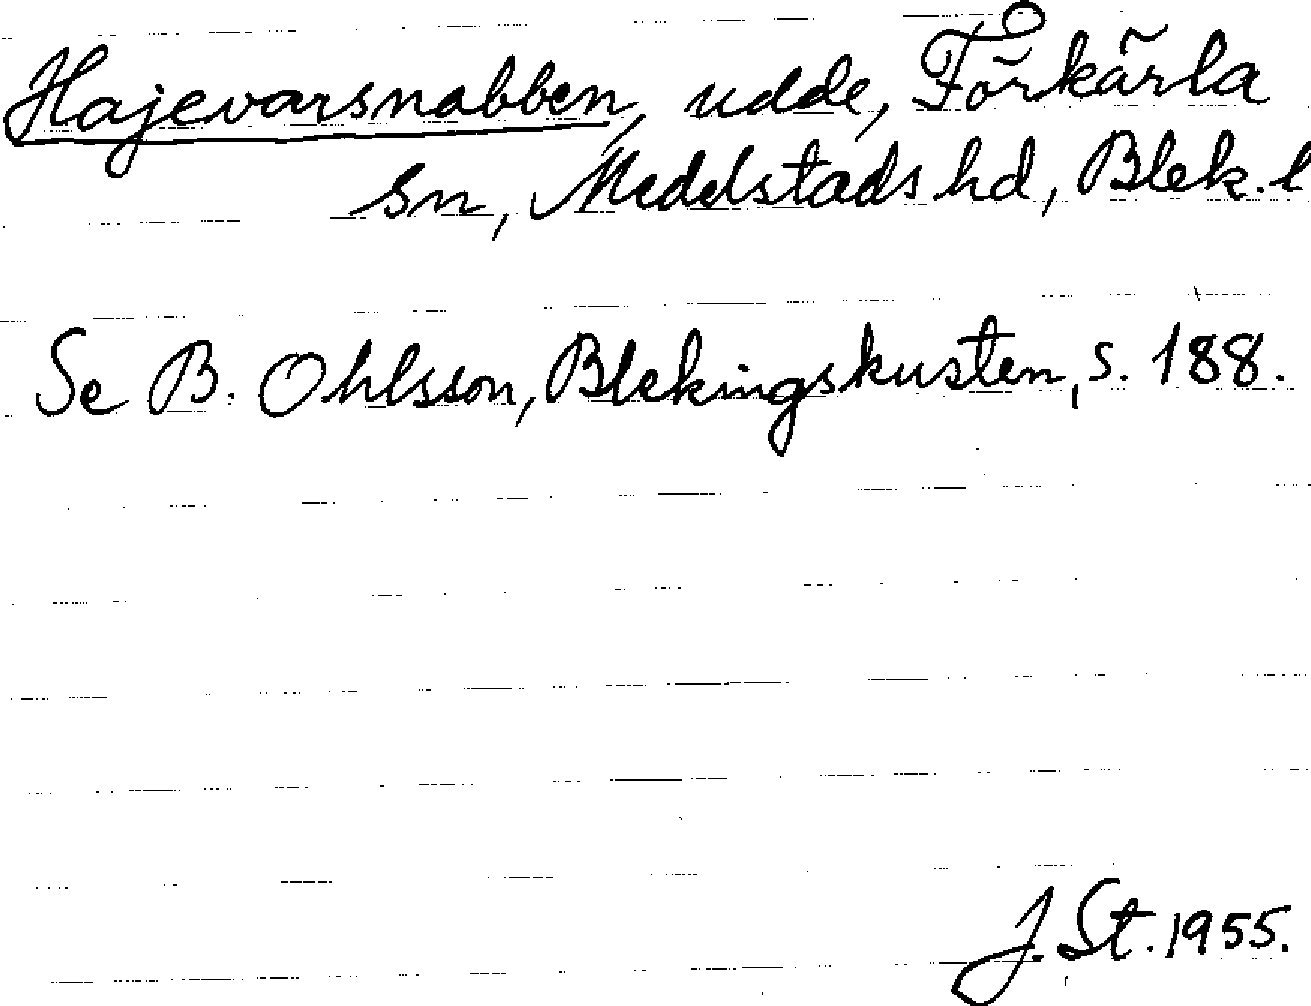 Hajevarsnabben, udde, Förkärla
sn, Medelstads hd, Blek. l
Se B. Ohlsson, Blekingskusten, s. 188.
J. St. 1955.